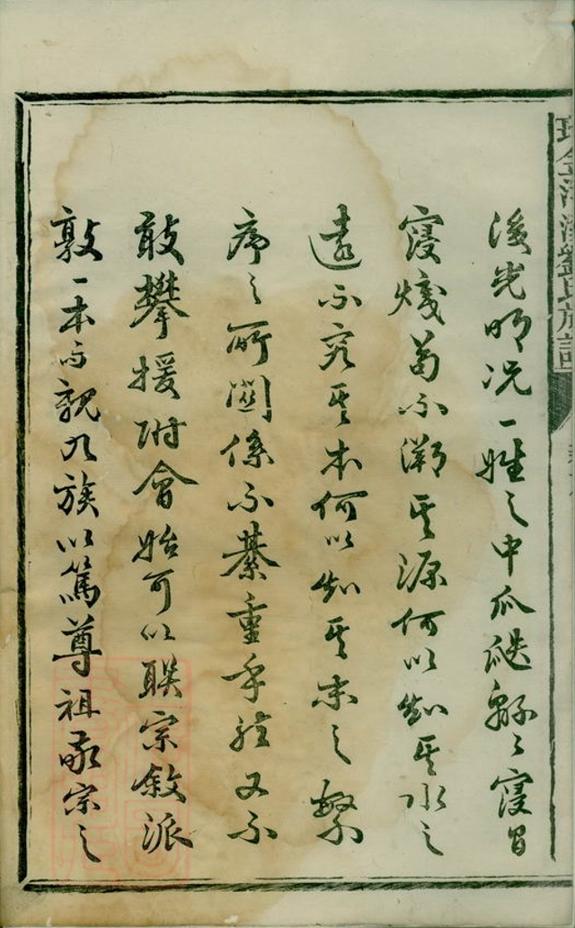 溪劉氏族譜
後光明况一姓之中瓜瓞緜々寖昌
寖熾苟不溯其源何以知其水之
遠不究其本何以知其末之繁
序之所關係不綦重乎然又不
敢攀援附會始可以联宗敘派
敦一本而親九族以篤尊祖敬宗之